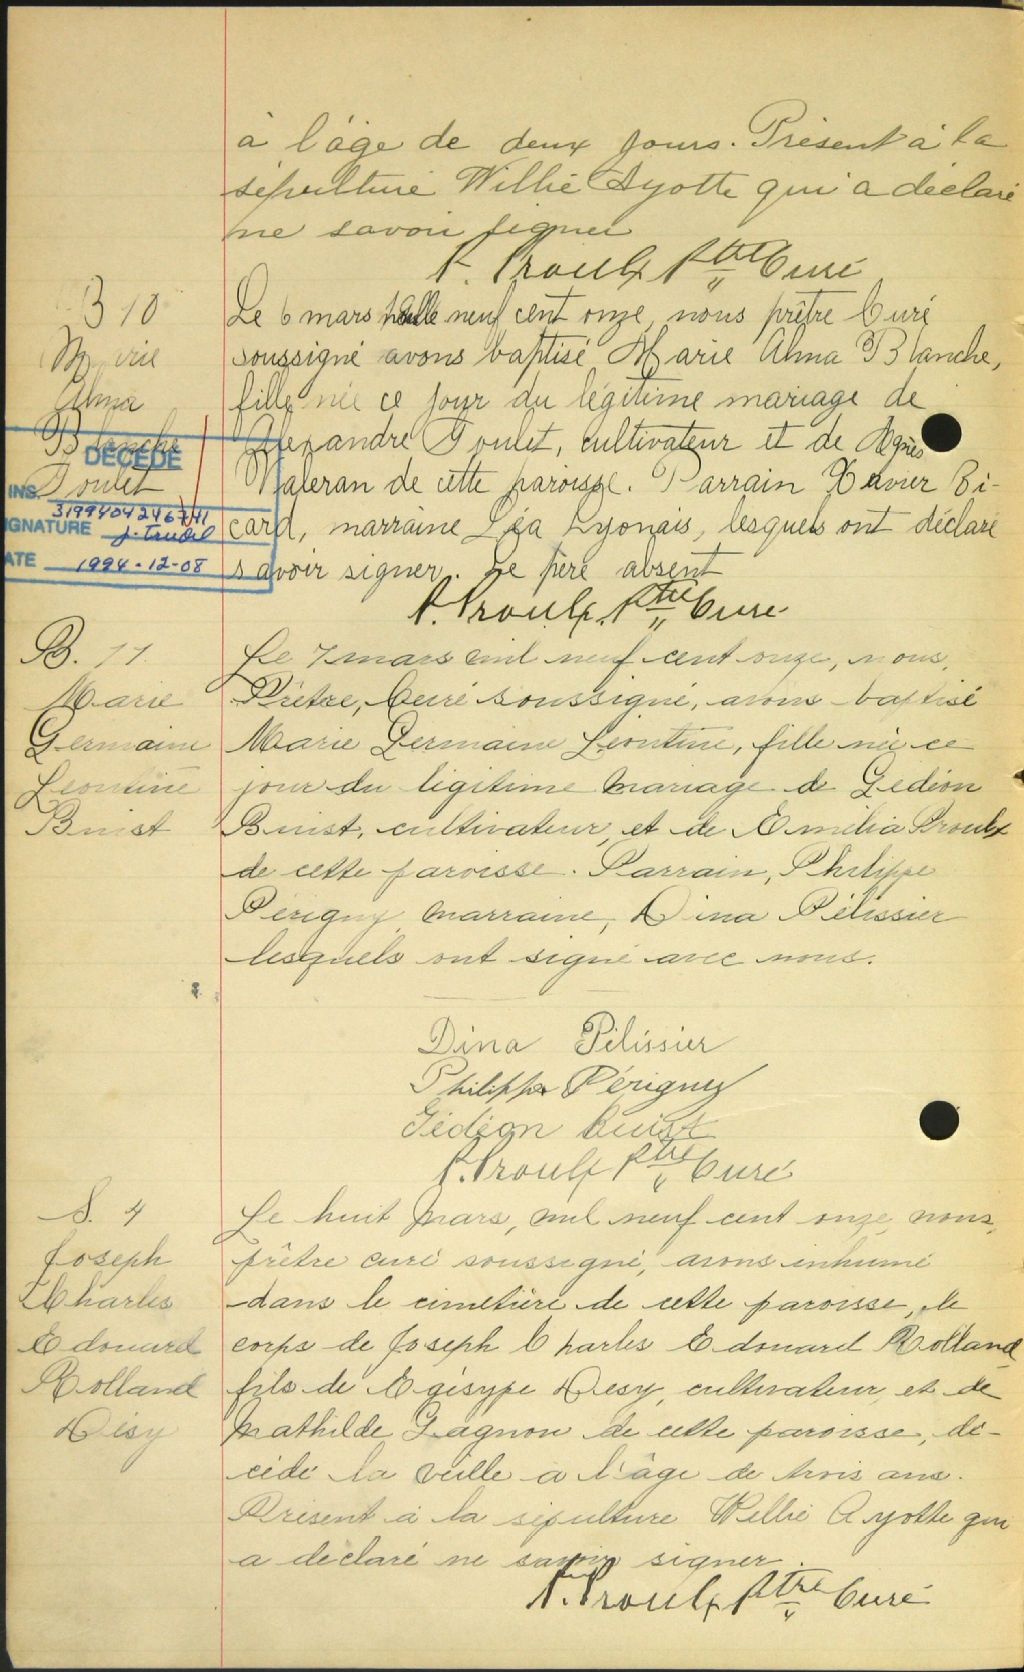 à l'âge de deux jours. Présent à la
sépulture Willie Ayotte qui a déclaré
ne savoir signer
P. Proulx Ptre Curé
B 10
Marie
Alma
Blanche
Toulet
DÉCÉDÉ
INS. 3199404246741
SIGNATURE J. Trudel
DATE 1994-12-08
Le 6 mars mille neuf cent onze, nous prêtre Curé
soussigné avons baptisé Marie Alma Blanche,
fille née ce jour du légitime mariage de
Alexandre Toulet, cultivateur et de Agnès
Waleran de cette paroisse. Parrain Xavier Bi-
card, marraine Léa Lyonais, lesquels ont déclaré
savoir signer. Le père absent
P. Proulx Ptre Curé
B. 11
Marie
Germaine
Léontine
Buist
Le 7 mars mil neuf cent onze, nous,
Prêtre, Curé soussigné, avons baptisé
Marie Germaine Léontine, fille née ce
jour du légitime mariage de Gédéon
Buist, cultivateur, et de Emélia Proulx
de cette paroisse. Parrain, Philippe
Périgny, marraine, Dina Pélissier
lesquels ont signé avec nous.
Dina Pélissier
Philippe Périgny
Gédéon Buist
P. Proulx Ptre Curé
S. 4
Joseph
Charles
Edouard
Rolland
Désy
Le huit Mars, mil neuf cent onze, nous,
prêtre curé soussigné, avons inhumé
dans le cimetière de cette paroisse, le
corps de Joseph Charles Edouard Rolland,
fils de Egésype Desy, cultivateur, et de
Mathilde Gagnon de cette paroisse, dé-
cédé la veille a l'âge de trois ans.
Présent à la sépulture Willie Ayotte qui
a déclaré ne savoir signer.
P. Proulx Ptre Curé